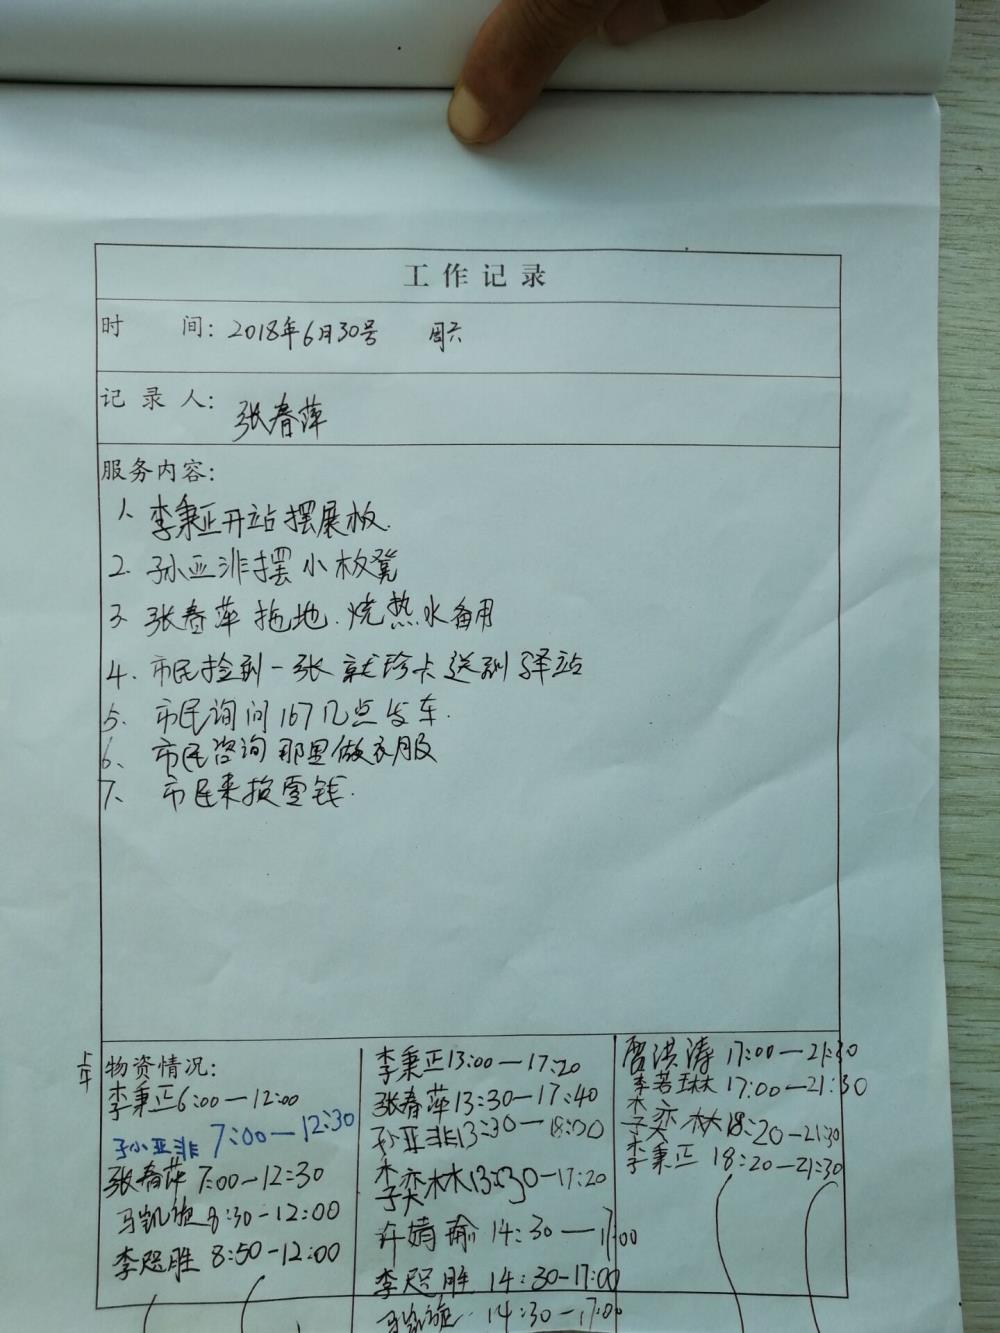 工作记录
时 间：2018年6月30号 周六
记录人：张春萍
服务内容：
1、李秉正开站摆展板.
2. 孙亚非摆小板凳
3. 张春萍拖地.烧热水备用
4. 市民捡到一张就诊卡送到驿站
5. 市民询问167几点发车.
6、市民咨询那里做衣服
7、市民来换零钱.
上午
物资情况：
李秉正6:00—12:00
孙亚非 7:00—12:30
张春萍 7:00—12:30
马凯旋 8:30-12:00
李 胜 8:50-12:00
李秉正13:00—17:20
张春萍13:30—17:40
孙亚非13:30—18:00
李奕林13:30—17:20
许婧瑜 14:30—17:00
李 胜 14:30-17:00
马凯旋 14:30-17:00
唐洪涛 17:00—21:30
李若琳 17:00—21:30
李奕林18:20—21:30
李秉正 18:20—21:30